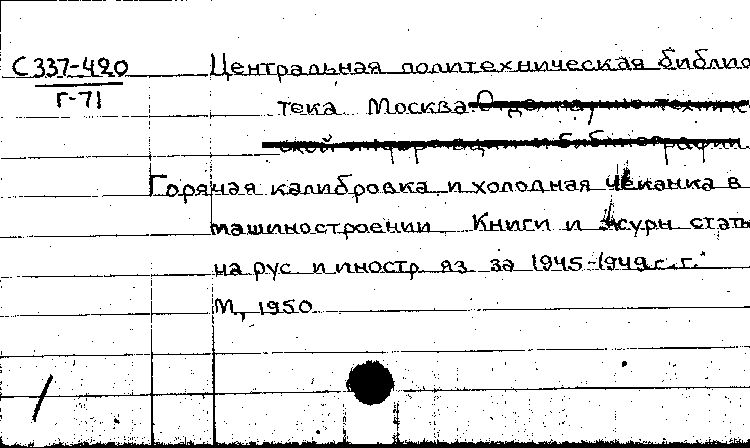 С 337-420 Центральная политехническая библио
Г-71
тека Москва Отдел научно-техниче
ской информации и библиографии
Горячая калибровка и холодная чеканка в
машиностроении Книги и журн статьи
на рус и иностр яз за 1945-1949 г.г.
М, 1950